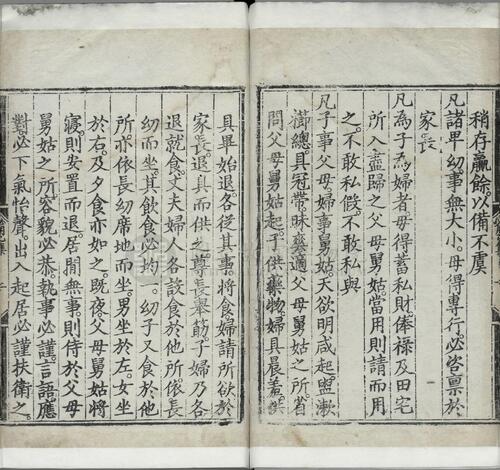 稍存贏餘以備不虞
凡諸卑幼事無大小母得專行必咨稟於
家長
凡為子為婦者母得蓄私財俸祿及田宅
所入盡歸之父母舅姑當用則請而用
之不敢私假不敢私與
凡子事父母舅姑天欲明咸起盥漱
櫛總具冠帶昧爽適父母舅姑之所省
問父母舅姑起子供藥物婦具晨羞供
具畢始退各從其事將食婦請所欲於
家長退具而供之尊長舉筯子婦乃各
退就食丈夫婦人各設食於他所依長
幼而坐其飲食必均一幼子又食於他
所亦依長幼席地而坐男坐於左女坐
於右及夕食亦如之既夜父母舅姑將
寢則安置而退居閒無事則侍於父母
舅姑之所容貌必恭執事必謹言語應
對必下氣怡聲出入起居必謹扶衛之